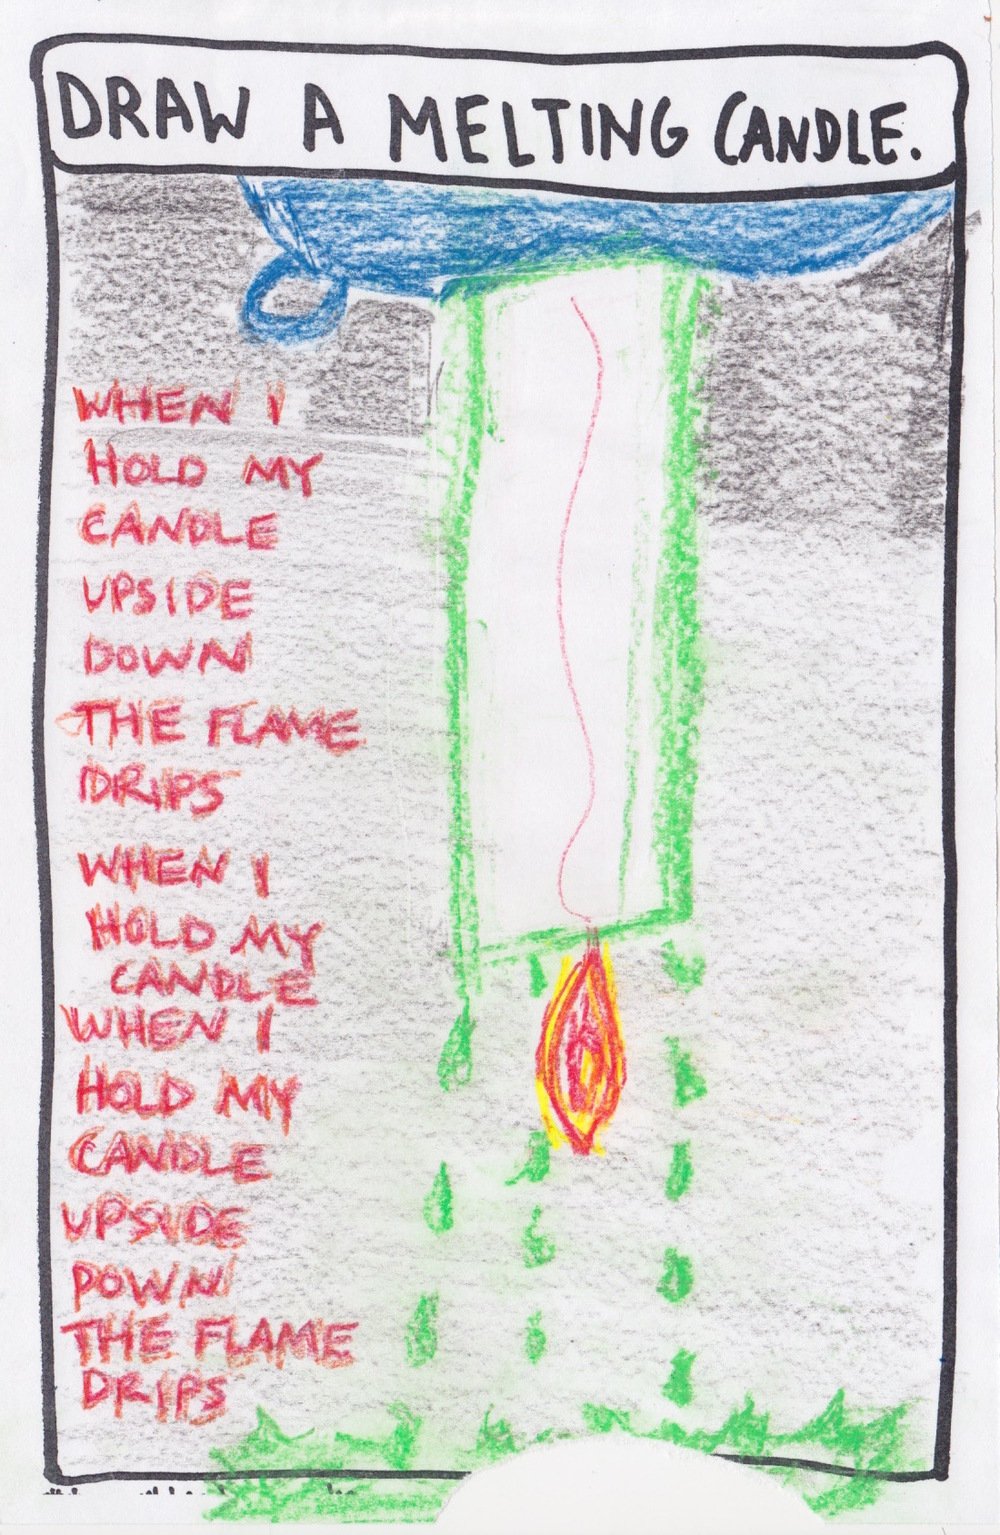 DRAW A MELTING CANDLE.
WHEN I
HOLD MY
CANDLE
UPSIDE
DOWN
THE FLAME
DRIPS
WHEN I
HOLD MY
CANDLE
WHEN I
HOLD MY
CANDLE
UPSIDE
DOWN
THE FLAME
DRIPS